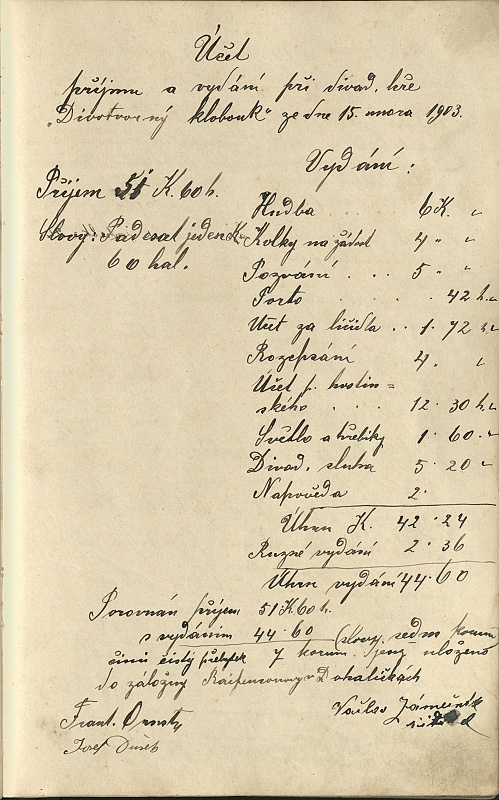 Účet
příjmu a vydání při divad. hře
„Divotvorný klobouk" ze dne 15. února 1903.
Příjem 51 K. 60 h.
Slovy: Padesat jeden K.
60 hal.
Vydání:
Hudba . . . 6 K. „
Kolky na žádost 4 „ „
Pozvání . . 5 „ „
Porto . . . . 42 h. „
Účet za líčidla . . 1 · 72 h. „
Rozepsání 4 . „
Účet p. hostin=
ského . . . 12 · 30 h. „
Světlo a hřebíky 1 · 60 . „
Divad. sluha 5 · 20 „
Napověda 2 ·
Úhrn K. 42 · 24
Ruzné vydání 2 · 36
Úhrn vydání 44 · 60
Porovnán příjem 51 K. 60 h.
s vydáním 44 · 60 (slovy sedm korun
činí čistý přebytek 7 korun. jenž uloženo
do záložny v Dohaličkách
Frant.
Josef Dušek
Václav Zámečník